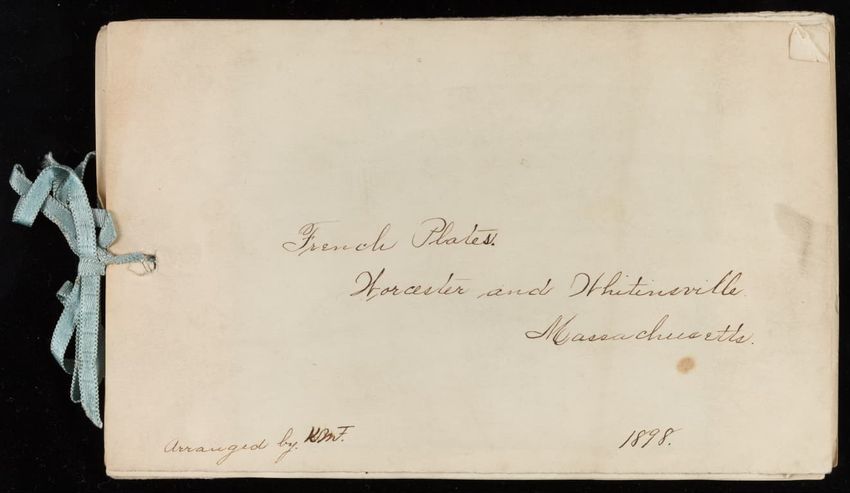 French Plates.
Worcester and Whitinsville.
Massachusetts.
Arranged by. KMF.
1898.